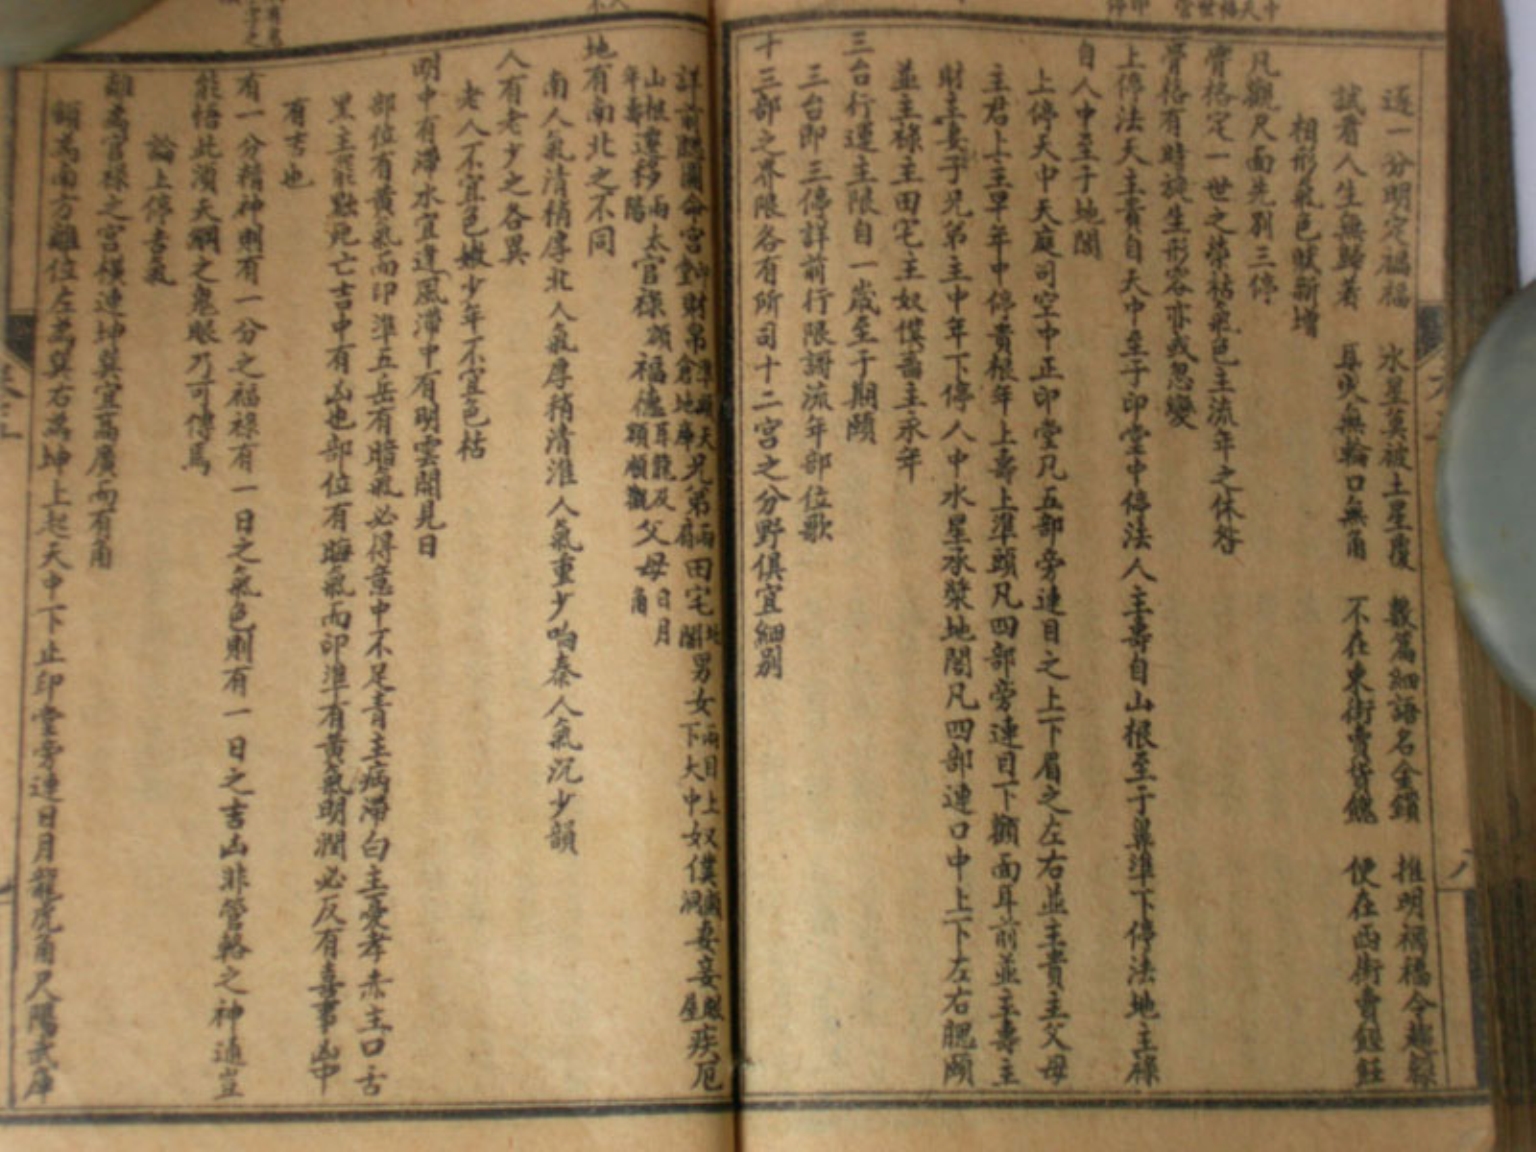 逐一分明定禍福　水星莫被土星覆　數篇細語名金鎖　推明禍福令
試看人生無歸著　耳反無輪口無角　不在東街賣貨　便在西街賣
相形氣色賦新增
凡觀尺面先別三停
骨格定一世之榮枯氣色主流年之休咎
骨格有時旋生形容亦或忽變
上停法天主貴自天中至于印堂中停法人主壽自山根至于鼻準下停法地主祿
自人中至于地閣
上停天中天庭司空中正印堂凡五部旁連目之上下眉之左右並主貴主父母
主君上主早年中停貴根年上壽上準頭凡四部旁連目下顴面耳前並主壽主
財主妻子兄弟主中年下停人中水星承漿地閣凡四部連口中上下左右腮頤
並主祿主田宅主奴僕畜主末年
三台行運主限自一歲至于期頤
三台即三停詳前行限謌流年部位歌
十三部之界限各有所司十二宮之分野俱宜細別
詳前 命宮 財帛 倉地庫 兄弟兩眉 田宅地閣 男女兩目下 大中奴僕 上 妻妾 疾厄
山根年壽 遷移兩 太 官祿額 福德 及 父母日月角
地有南北之不同
南人氣清稍厚北人氣厚稍清淮人氣重少响秦人氣沉少韻
人有老少之各異
老人不宜色嫩少年不宜色枯
明中有滯水宜逢風滯中有明雲開見日
部位有黃氣而印準五岳有暗氣必得意中不足青主病滯白主憂孝赤主口舌
黑主 死亡吉中有凶也部位有晦氣而印準有黃氣明潤必反有喜事凶中
有吉也
有一分精神則有一分之福祿有一日之氣色則有一日之吉凶非管輅之神通豈
能悟此須天綱之鬼眼乃可傳焉
論上停吉氣
離為官祿之宮橫連坤巽宜高廣而有角
額為南方離位左為巽右為坤上起天中下止印堂旁連日月龍虎角尺陽武庫